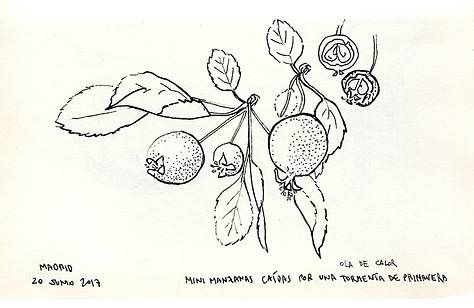 MADRID
20 JUNIO 2017
OLA DE CALOR
MINI MANZANAS CAÍDAS POR UNA TORMENTA DE PRIMAVERA